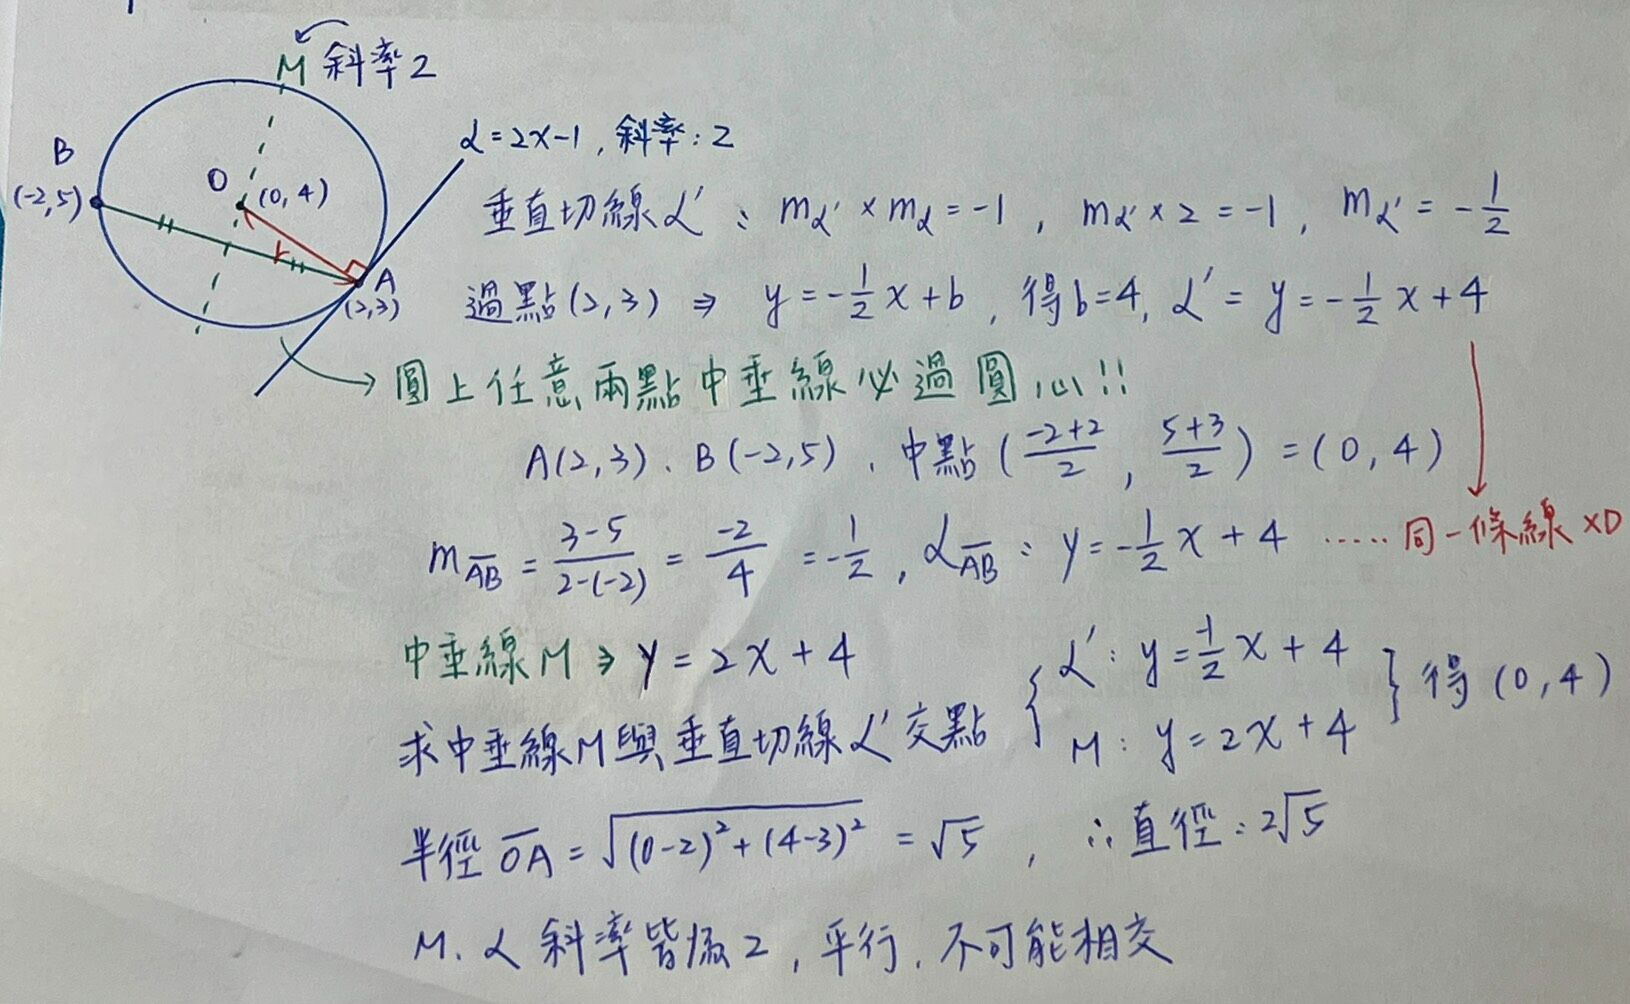 M 斜率2
B
(-2,5)
O (0,4)
r
A
(2,3)
L=2x-1, 斜率:2
垂直切線L' : mL' × mL = -1 , mL' × 2 = -1 , mL' = -1/2
過點(2,3) ⇒ y = -1/2 x + b , 得b=4, L' = y = -1/2 x + 4
圓上任意兩點中垂線必過圓心!!
A(2,3)、B(-2,5)、中點(-2+2/2 , 5+3/2) = (0,4)
mAB = 3-5/2-(-2) = -2/4 = -1/2 , LAB : y = -1/2 x + 4 ..... 同一條線XD
中垂線M ⇒ y = 2x + 4
求中垂線M與垂直切線L'交點 { L' : y = -1/2 x + 4
M : y = 2x + 4 } 得(0,4)
半徑 OA = √(0-2)²+(4-3)² = √5 , ∴直徑:2√5
M、L 斜率皆為2 , 平行, 不可能相交